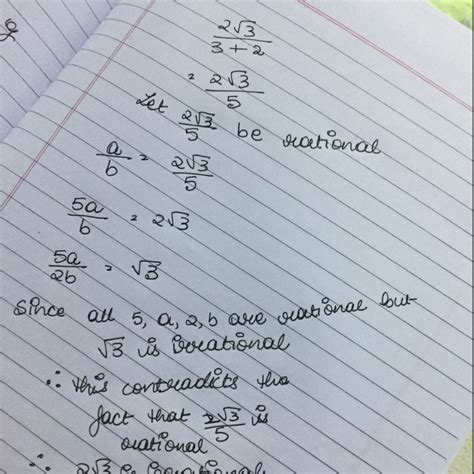 2√3/3+2
= 2√3/5
Let 2√3/5 be rational
a/b = 2√3/5
5a/b = 2√3
5a/2b = √3
Since all 5, a, 2, b are rational but
√3 is irrational
∴ this contradicts the
fact that 2√3/5 is
rational
∴ 2√3 is irrational